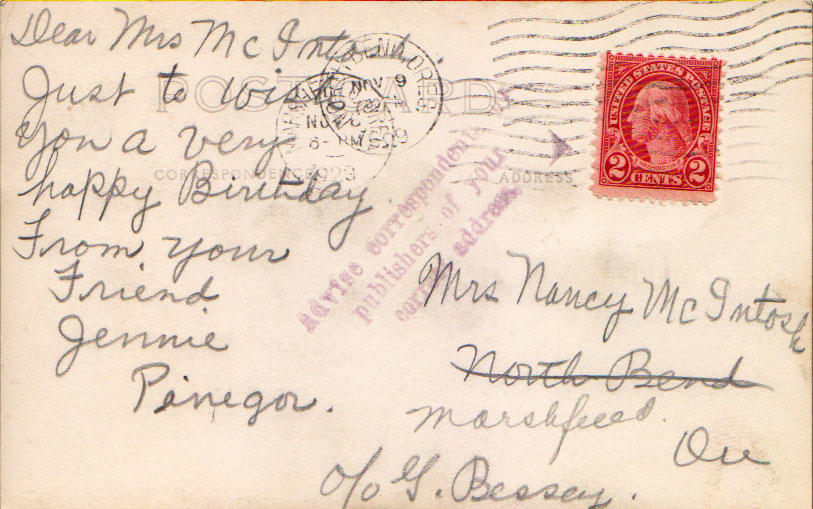 Dear Mrs McIntosh.
Just to wish
you a very
happy Birthday.
From your
Friend
Jennie
Pinegor.
POST CARD
CORRESPONDENCE
ADDRESS
NORTH BEND, OREG.
NOV 9
NOV 8
6-PM
1929
Advise correspondents
publishers of your
correct address
UNITED STATES POSTAGE
2 CENTS 2
Mrs Nancy McIntosh
North Bend
Marshfield.
Ore
c/o G. Bessey.